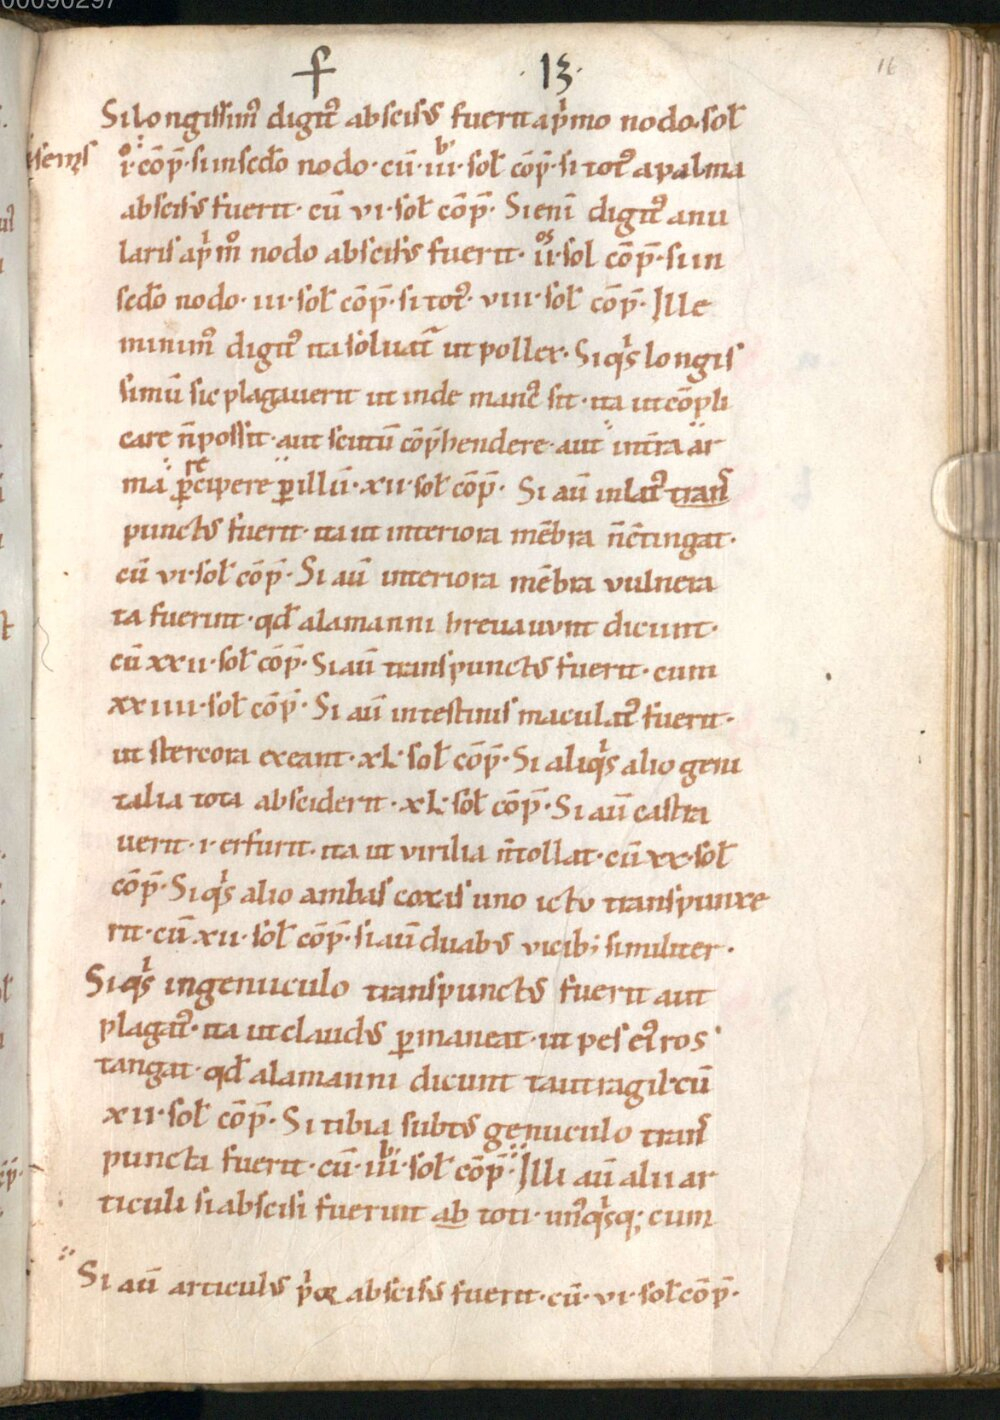 00090297
f · 13 · 16
Si longissim᷒ digit᷒ abscisus fuerit a pͥmo nodo. sol̄
i· cōp̄· si in sed̄o nodo· cū· iii· sol̄ cōp̄· si tot᷒ a palma
abscisus fuerit· cū vi· sol̄ cōp̄· Si enī digit᷒ anu
laris a pͥmº nodo abscisus fuerit· ii· sol cōp̄· si in
sed̄o nodo· iii· sol̄ cōp̄· si tot᷒· viii· sol̄ cōp̄· Ille
minim᷒ digit᷒ ita soluat᷑ ut pollex· Si qͥs longis
simū sic plagauerit ut inde manc᷒ sit· ita ut cōpli
care n̄ possit· aut scutū cōp̄hendere· aut int̄ra ar
ma p̄cipere re ꝑ illū· xii· sol̄ cōp̄· Si aū in lat᷒ trans
punctus fuerit· ita ut interiora mēbra n̄ c̄tingat·
cū vi· sol̄ cōp̄· Si aū interiora mēbra vulnera
ta fuerint· qd̄ alamanni hreuauunt dicunt·
cū xxii· sol̄ cōp̄· Si aū transpunctus fuerit· cum
xxiiii· sol̄ cōp̄· Si aū intestinis maculat᷒ fuerit·
ut stercora exeant· xl· sol̄ cōp̄· Si aliqͥs alio geni
talia tota absciderit· xl· sol̄ cōp̄· Si aū castra
uerit· i· erfurit· ita ut virilia n̄ tollat· cū xx· sol̄
cōp̄· Si qͥs alio ambas coxas uno ictu transpunxe
rit· cū xii· sol̄ cōp̄· si aū duabus vicib; similiter·
Si qͥs in genuculo transpunctus fuerit aut
plagat᷒· ita ut claudus ꝑmaneat· ut pes ei᷒ ros
tangat· qd̄ alamanni dicunt tautragil· cū
xii· sol̄ cōp̄· Si tibia subtus genuculo trans
puncta fuerit· cū· iii· sol̄ cōp̄· Illi aū alii ar
ticuli si abscisi fuerunt ab toti· un᷒qͥsq; cum
Si aū articulus pͥor abscisus fuerit· cū· vi· sol̄ cōp̄·